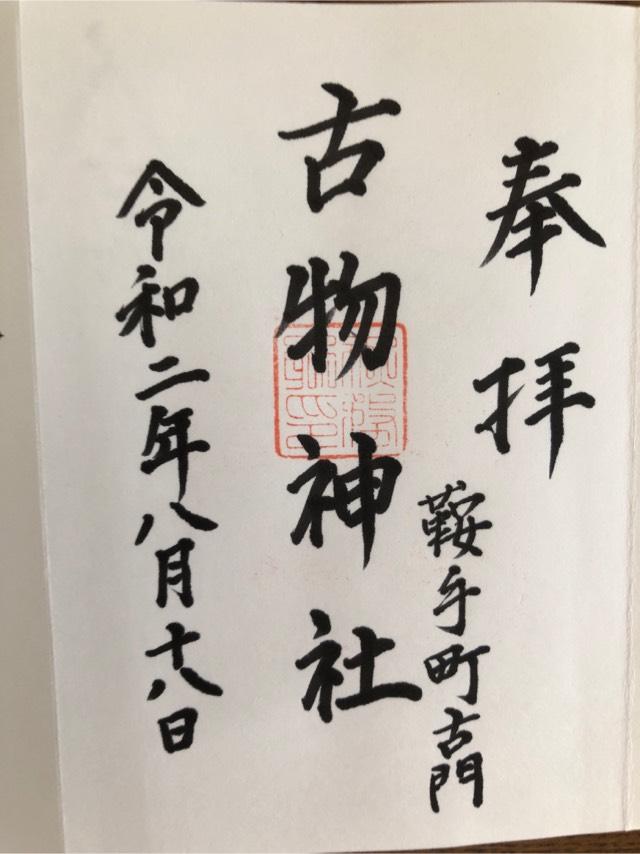 奉拝
鞍手町古門
古物神社
令和二年八月十八日